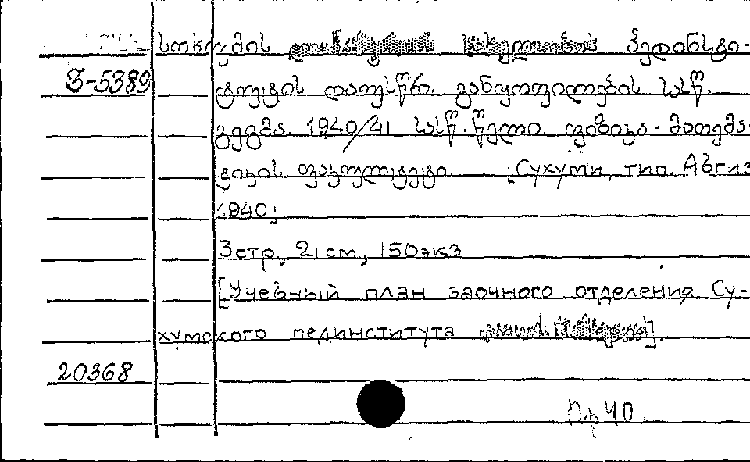 სოხუმის პედინსტი-
ტუტის დაუსწრ. განყოფილების სასწ.
გეგმა 1940/41 სასწ. წელი ფიზიკა-მათემა-
ტიკის ფაკულტეტი Сухуми, тип. Абгиз
1940;
3 стр, 21 см, 150 экз
[Учебный план заочного отделения Су-
хумского пединститута ].
З-5389
20368
Пр 40